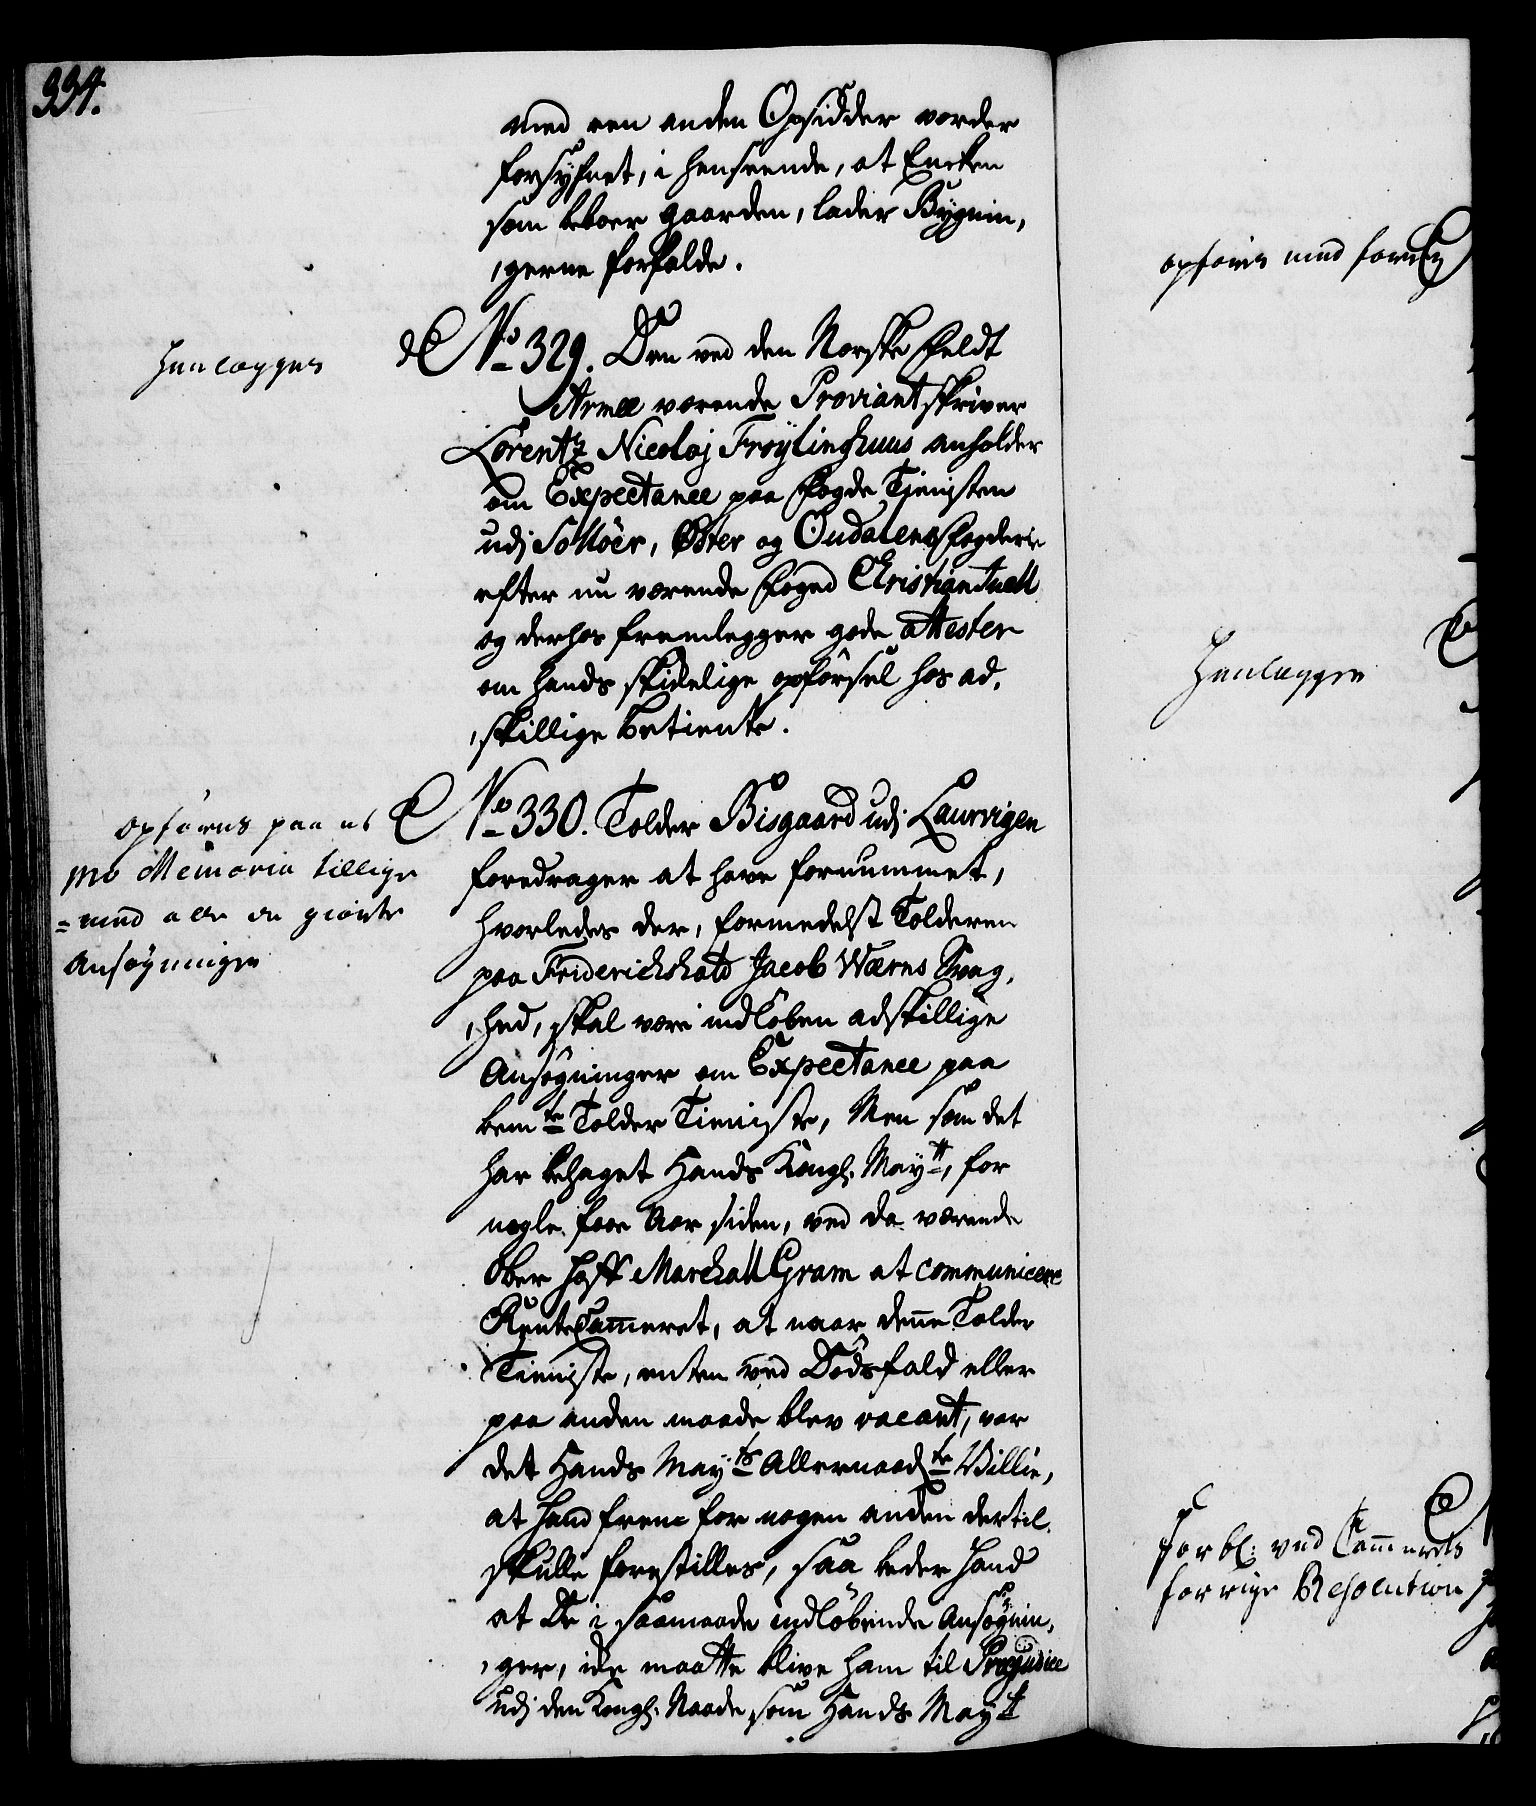 334.
med een anden Opsidder vorder
forsÿfnet, i henseende, at Encken
som beboer gaarden, lader Bygnin,
,gerne forfalde.
Henlægges
No 329. Den ved den Norske Feldt
Armee værende Proviantskriver
Lorentz Nicolaj Frøÿlinghuus anholder
om Expectance paa Fogde Tienisten
udj Solløer, Øster og Oudalens Fogderie
efter nu værende Foged Christian Tuell
og derhos fremlegger gode attester
om hands skichelige opførsel hos ad,
,skillige betiente.
opføres paa et
pro Memoria tillige
=med alle de giorte
Ansøgninger
No 330. Tolder Bisgaard udj Laurvigen
foredrager at have fornummet,
hvorledes der, formedelst Tolderen
paa Friderichshald Jacob Wærns Svag,
,hed, skal være indløben adskillige
Ansøgninger om Expectance paa
bemte Tolder Tieniste, Men som det
har behaget Hands Kongl. Maytt, for
nogle faae Aar siden, ved da værende
Ober Hoff Marchall Gram at communicere
RenteCammeret, at naar denne Tolder
Tieniste, enten ved Dødsfald eller
paa anden maade blev vacant, var
det Hands Mayts Allernaadte Villie,
at hand frem for nogen anden dertil
skulle forestilles, saa beder hand
at De i saamaade indløbende Ansøgnin,
,ger, icke maatte blive ham til Præjudice
udj den Kongl. Naade som Hands Maytt
opføres med forrig
Henlægges
Forbl. ved Cammerets
forrige Resolution